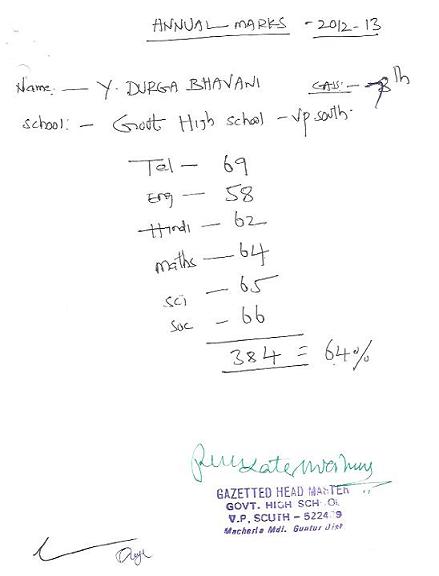 ANNUAL MARKS - 2012-13
Name: — Y. DURGA BHAVANI class: - 8th
school: - Govt High school - Vp south.
Tel - 69
Eng - 58
Hindi - 62
maths - 64
sci - 65
soc - 66
384 = 64%
GAZETTED HEAD MASTER
GOVT. HIGH SCHOOL
V.P. SOUTH - 522439
Macherla Mdl. Guntur Dist